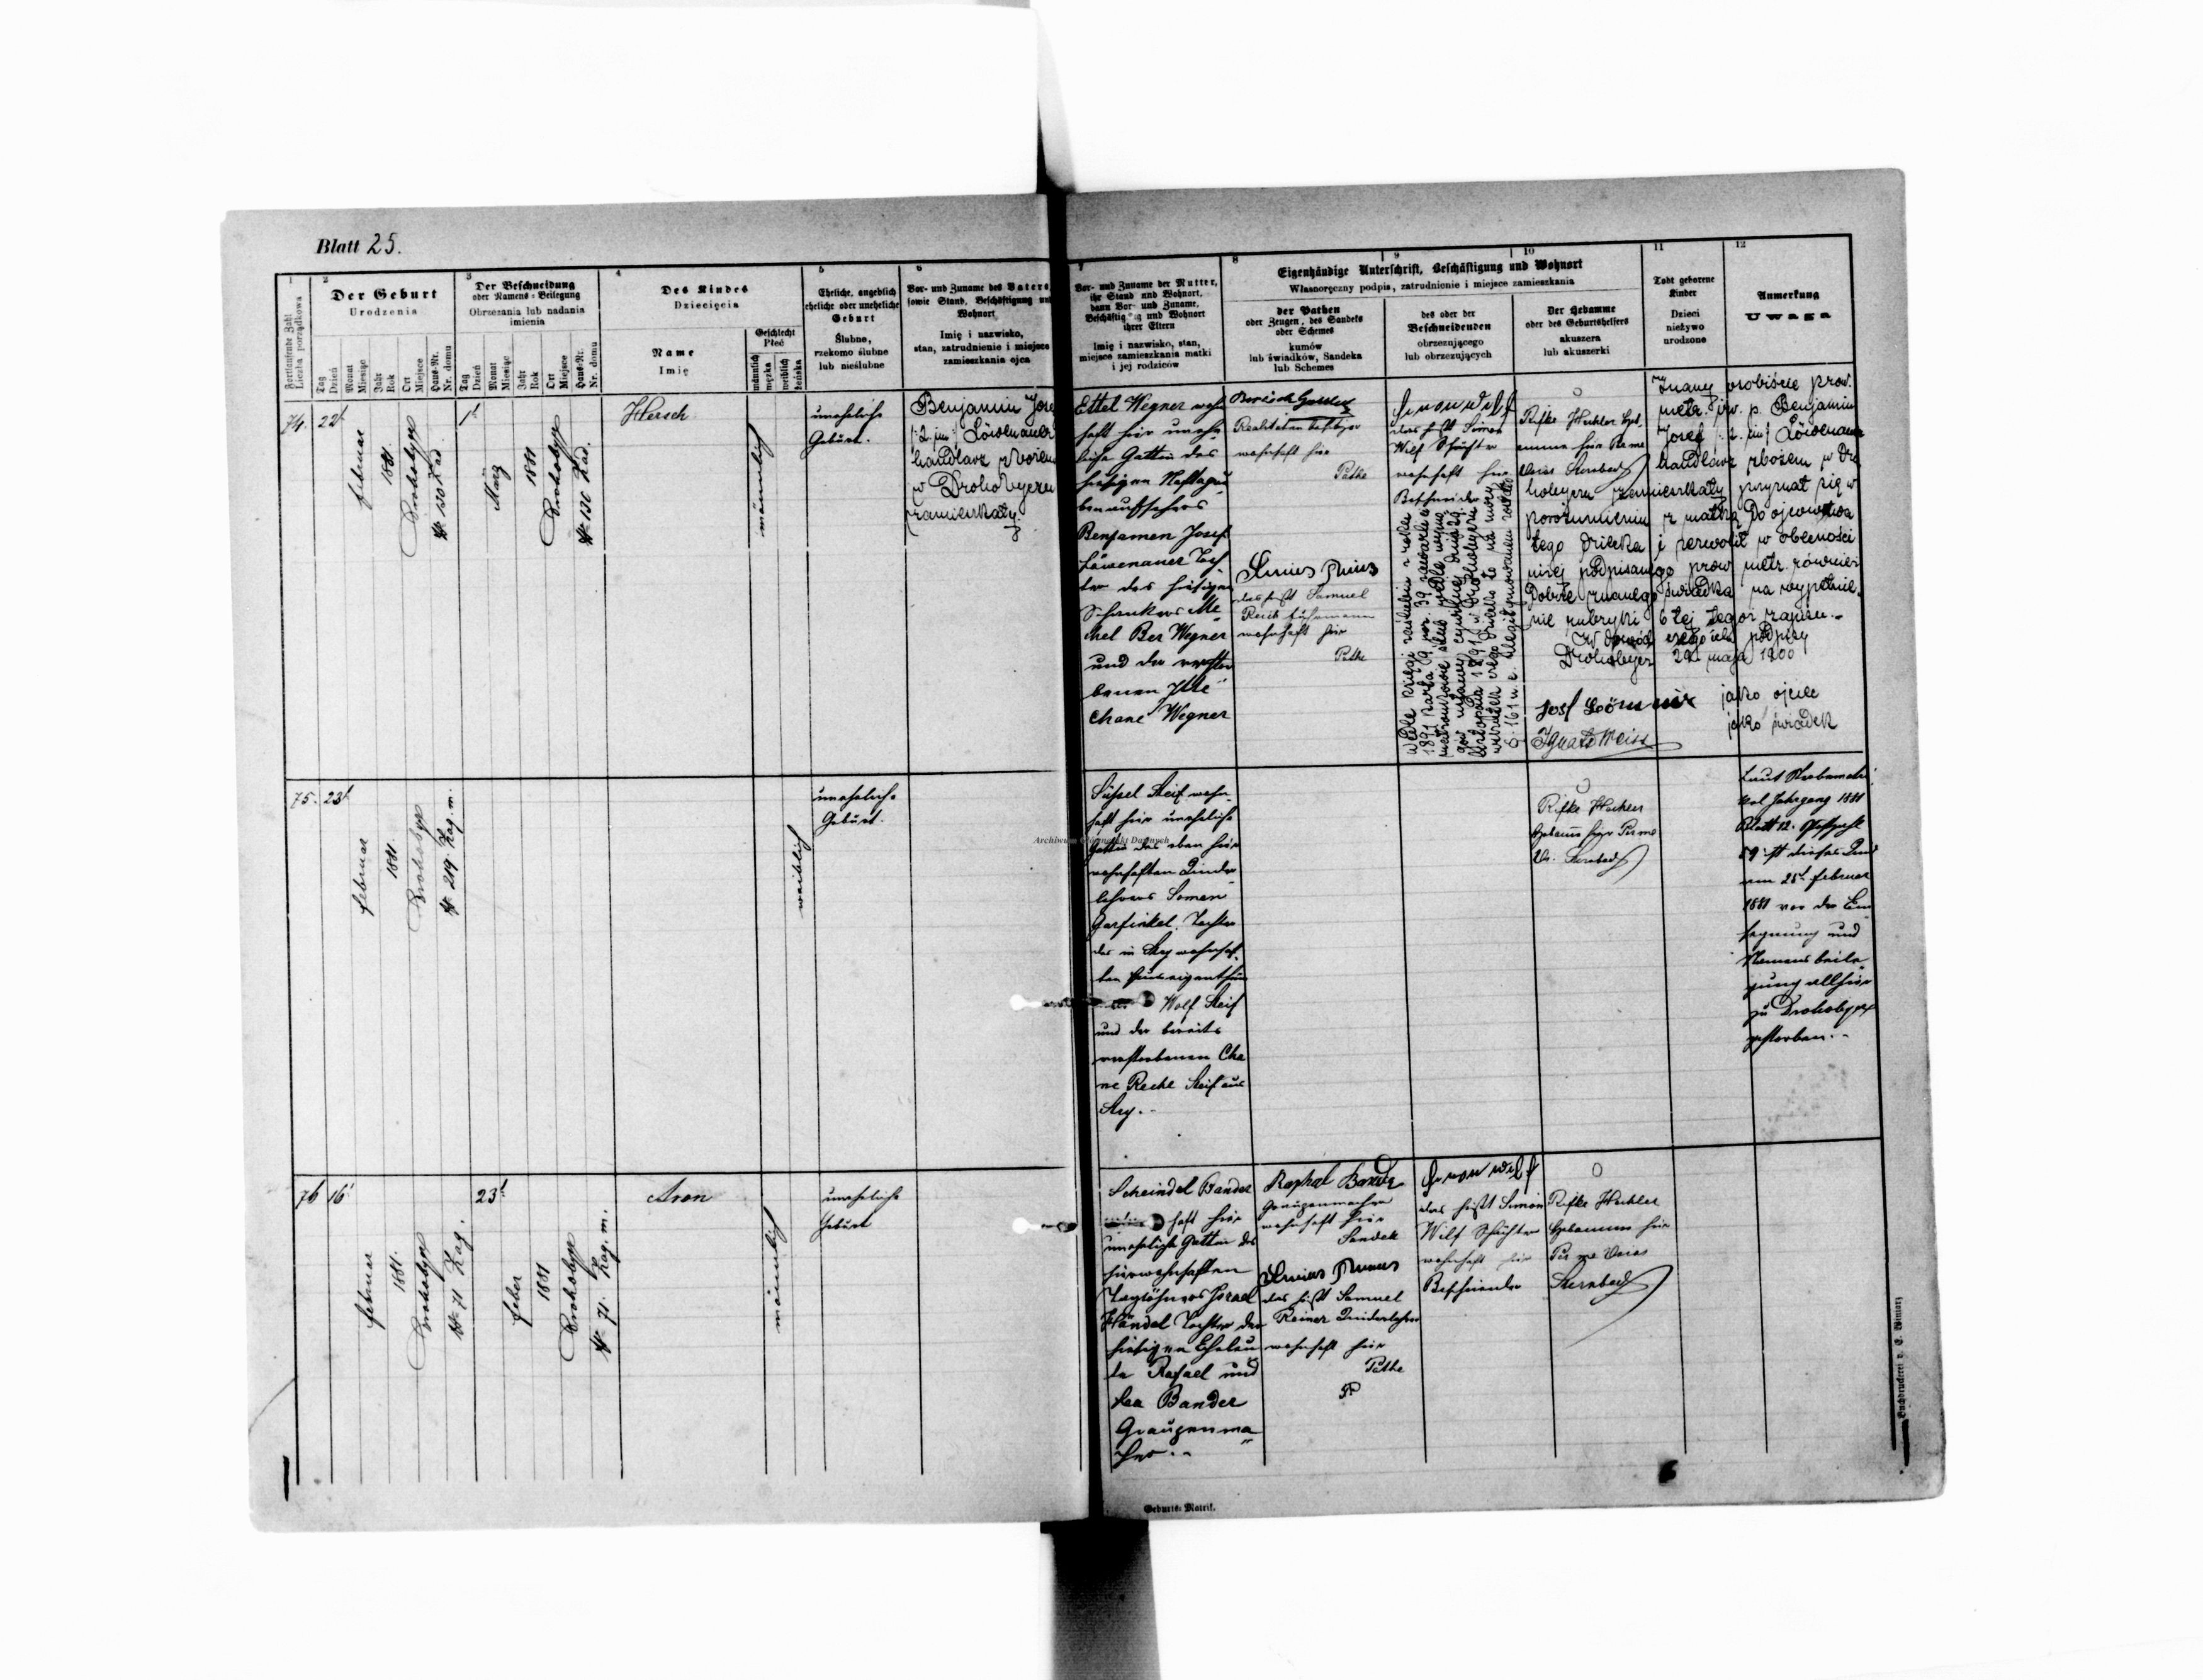 Blatt 25.
1
Fortlaufende Zahl
Liczba porządkowa
2
Der Geburt
Urodzenia
Tag
Dzień
Monat
Miesiąc
Jahr
Rok
Ort
Miejsce
Haus-Nr.
Nr. domu
3
Der Beschneidung
oder Namens-Beilegung
Obrzezania lub nadania
imienia
Tag
Dzień
Monat
Miesiąc
Jahr
Rok
Ort
Miejsce
Haus-Nr.
Nr. domu
4
Des Kindes
Dziecięcia
Name
Imię
Geschlecht
Płeć
männlich
męzka
weiblich
żeńska
5
Eheliche, angeblich
eheliche oder uneheliche
Geburt
Ślubne,
rzekomo ślubne
lub nieślubne
6
Vor- und Zuname des Vaters,
sowie Stand, Beschäftigung und
Wohnort
Imię i nazwisko,
stan, zatrudnienie i miejsce
zamieszkania ojca
7
Vor- und Zuname der Mutter,
ihr Stand und Wohnort,
dann Vor- und Zuname,
Beschäftigung und Wohnort
ihrer Eltern
Imię i nazwisko, stan,
miejsce zamieszkania matki
i jej rodziców
8
9
10
Eigenhändige Unterschrift, Beschäftigung und Wohnort
Własnoręczny podpis, zatrudnienie i miejsce zamieszkania
der Pathen
oder Zeugen, des Sandeks
oder Schemes
kumów
lub świadków, Sandeka
lub Schemes
des oder der
Beschneidenden
obrzezującego
lub obrzezujących
Der Hebamme
oder des Geburtshelfers
akuszera
lub akuszerki
11
Todt geborene
Kinder
Dzieci
nieżywo
urodzone
12
Anmerkung
Uwaga
74.
22t
Februar
1881.
Drohobycz
1t
März
1881
Drohobycz
Nr 130 Zad.
Hersch
männlich
uneheliche
Geburt.
Benjamin Josef
(2. im.) Löwenauer
handlarz zbożem
w Drohobyczu
zamieszkały.
Ettel Wegner wohn
haft hier unehe
liche Gattin des
hiesigen Naftagru
benaufsehers
Benjamen Josef
Löwenauer Toch
ter des hiesigen
Schenkers Me
chel Ber Wegner
und der verstor
benen Jtte
Chane Wegner
Realitätenbesitzer
wohnhaft hier
Pathe
das heißt Samuel
wohnhaft hier
Pathe
das heißt Simon
Wilf Schächter
wohnhaft hier
Beschneider
Rifke Wachler Heb
amme hier Perme
Veies Sternbach
Znany osobiście prow.
metr. izr. p. Benjamin
Josef (2. im) Löwenauer
handlarz zbożem w Dro
hobyczu zamieszkały przyznał się w
porozumieniu z matką do ojcowstwa
tego dziecka i zezwolił w obecności
niżej podpisanego prow. metr. równiez
dobrze znanego świadka na wypełnie
nie rubryki 6tej tegoż zapisu.
W dowód czego ich podpisy
Drohobycz 29 maja 1900
Josef Löwenauer jako ojciec
Ignatz Weiss jako świadek
75.
23t
Februar
1881.
Drohobycz
Nr 219 Zag. m.
weiblich
uneheliche
Geburt.
Süssel Steif wohn
haft hier uneheliche
Gattin des eben hier
wohnhaften Kinder
lehrers Somen
Garfinkel Tochter
des in Stry wohnhaf
ten Hauseigenthüm
Wolf Steif
und der bereits
verstorbenen Cha
ne Reche Steif aus
Stry.
Rifke Wachler
Hebamme hier Perme
V. Sternbach
Laut Sterbematri
kel Jahrgang 1881
Blatt 12. Postzahl
59 ist dieses Kind
am 25t Februar
1881 vor der Ein
segnung und
Namensbeile
gung allhier
zu Drohobycz
gestorben.
Archiwum Główne Akt Dawnych
76
16t
Februar
1881.
Drohobycz
Nr 71 Zag.
23t
Feber
1881
Drohobycz
Nr 71. Zag. m.
Aron
männlich
uneheliche
Geburt
Scheindel Bander
haft hier
uneheliche Gattin des
hierwohnhaften
Taglöhners Israel
Händel Tochter der
hiesigen Eheleu
te Rafael und
Lea Bander
Graupenma
cher.
Raphal Bander
Graupenmacher
wohnhaft hier
Sandek
das heißt Samuel
Reiner Kinderlehrer
wohnhaft hier
Pathe
das heißt Simon
Wilf Schächter
wohnhaft hier
Beschneider
Rifke Wachler
Hebamme hier
Perme Veies
Sternbach
Geburts-Matrik.
Buchdruckerei v. E. Winiarz